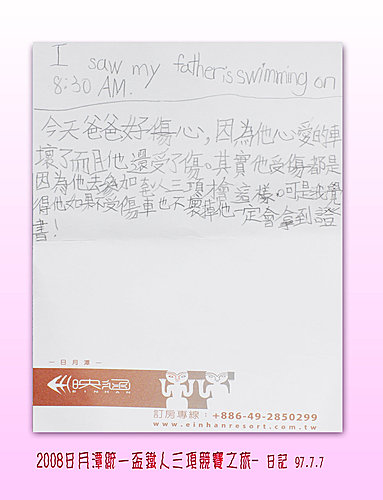 I saw my father is swimming on
8:30 AM.
今天爸爸好傷心，因為他心愛的車
壞了而且他還受了傷。其實他受傷都是
因為他去參加鐵人三項才會這樣。可是我覺
得他如果不受傷車也不壞掉他一定會拿到證
書！
－日月潭－
EINHAN
訂房專線：+886-49-2850299
www.einhanresort.com.tw
2008日月潭統一盃鐵人三項競賽之旅- 日記 97.7.7